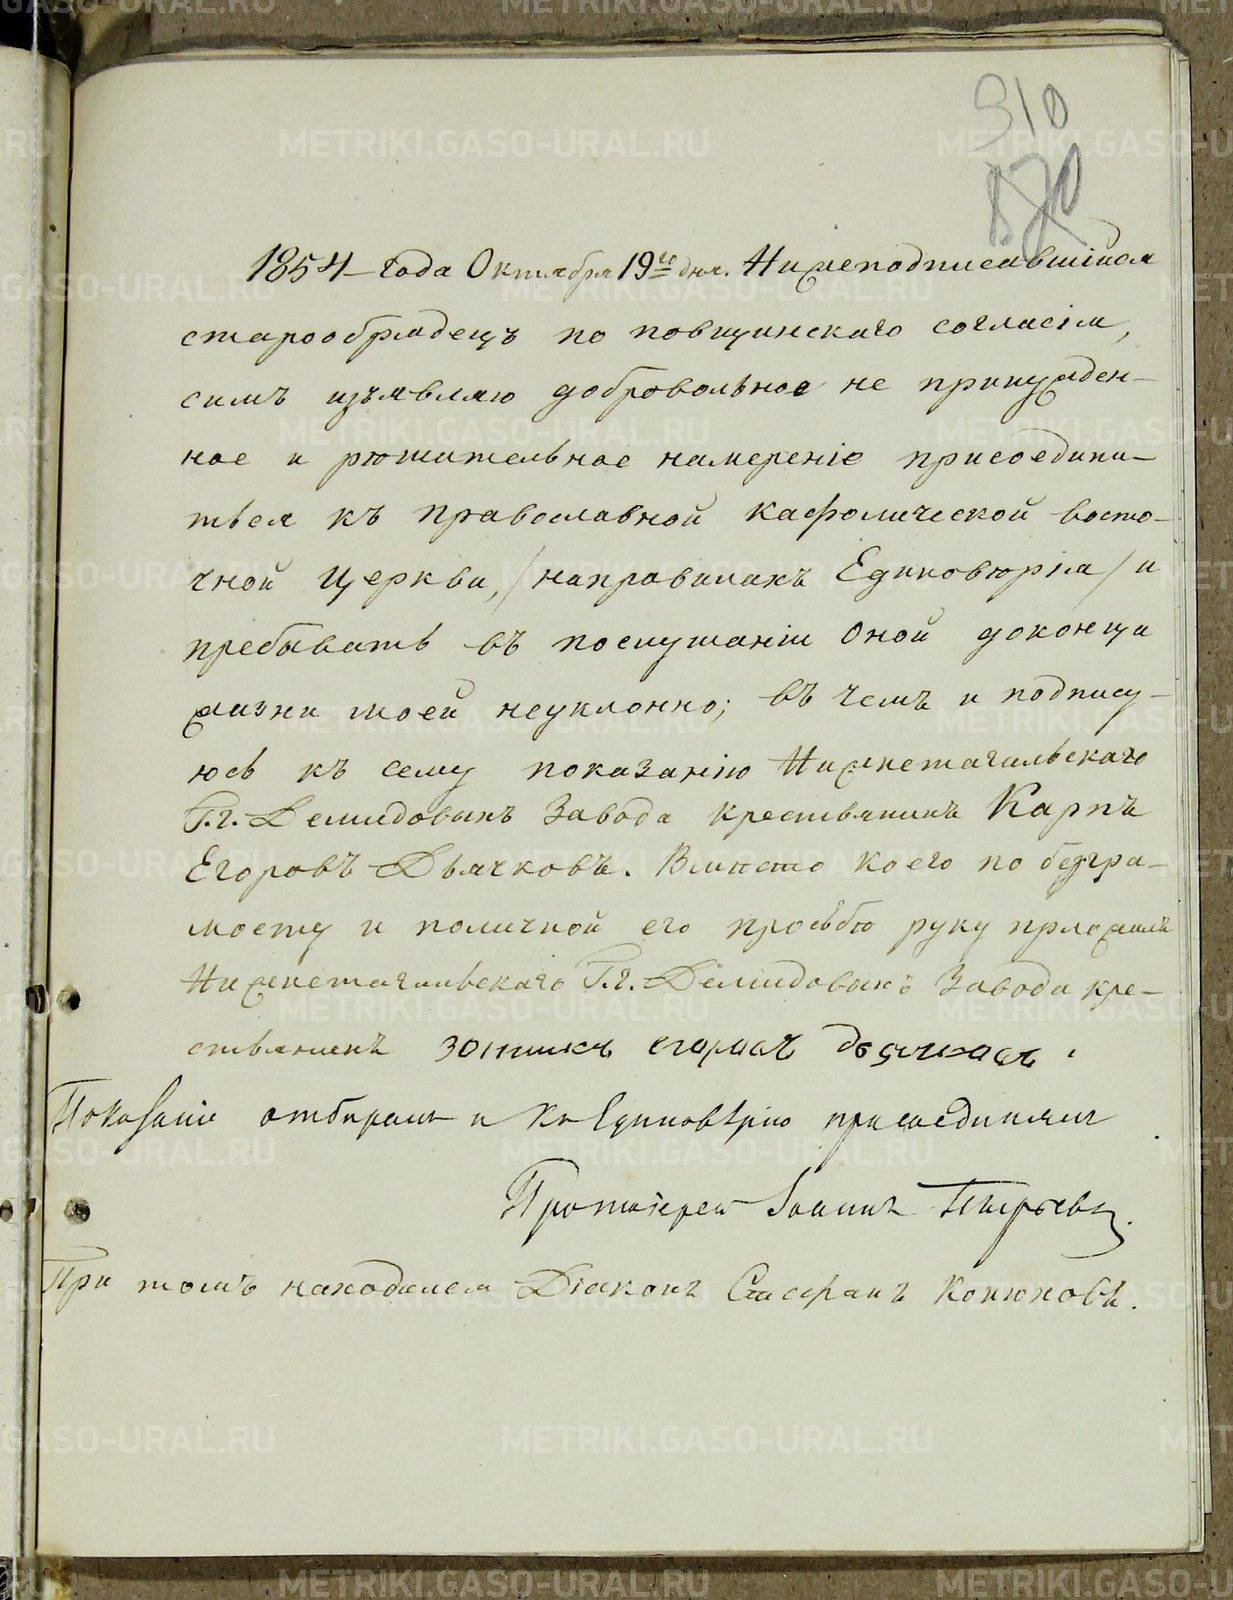 310
870
1854 года Октября 19го дня. Нижеподписавшійся
старообрядецъ по повщинскаго согласія,
симъ изъявляю добровольное не принужден-
ное и рѣшительное намереніе присоедини-
ться къ православной кафолической восто-
чной Церкви, /направилахъ Единовѣрія/ и
пребывать въ послушаніи Оной доконца
жизни моей неуклонно; въ чемъ и подпису-
юсь къ сему показанію Нижнетагильскаго
Г.г. Демидовыхъ Завода крестьянинъ Карпъ
Егоровъ Дьячковъ. Вместо коего по безгра-
мосту и поличной его просьбѣ руку приложилъ
Нижнетагильскаго Г.г. Демидовыхъ Завода кре-
стьянинъ зотикъ егоровъ
Показаніе отбиралъ и къ Единовѣрію присоединялъ
Протоіерей Іоаннъ Пырьевъ.
При томъ находился Діаконъ Стефанъ Конюховъ.
METRIKI.GASO-URAL.RU